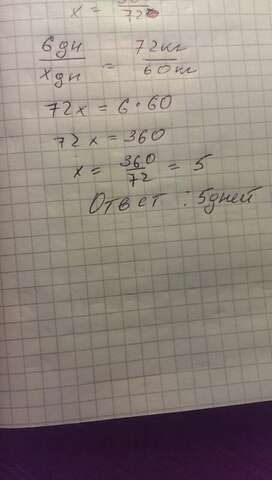 x =
6 дн / x дн = 72 кг / 60 кг
72x = 6 · 60
72x = 360
x = 360 / 72 = 5
Ответ : 5 дней